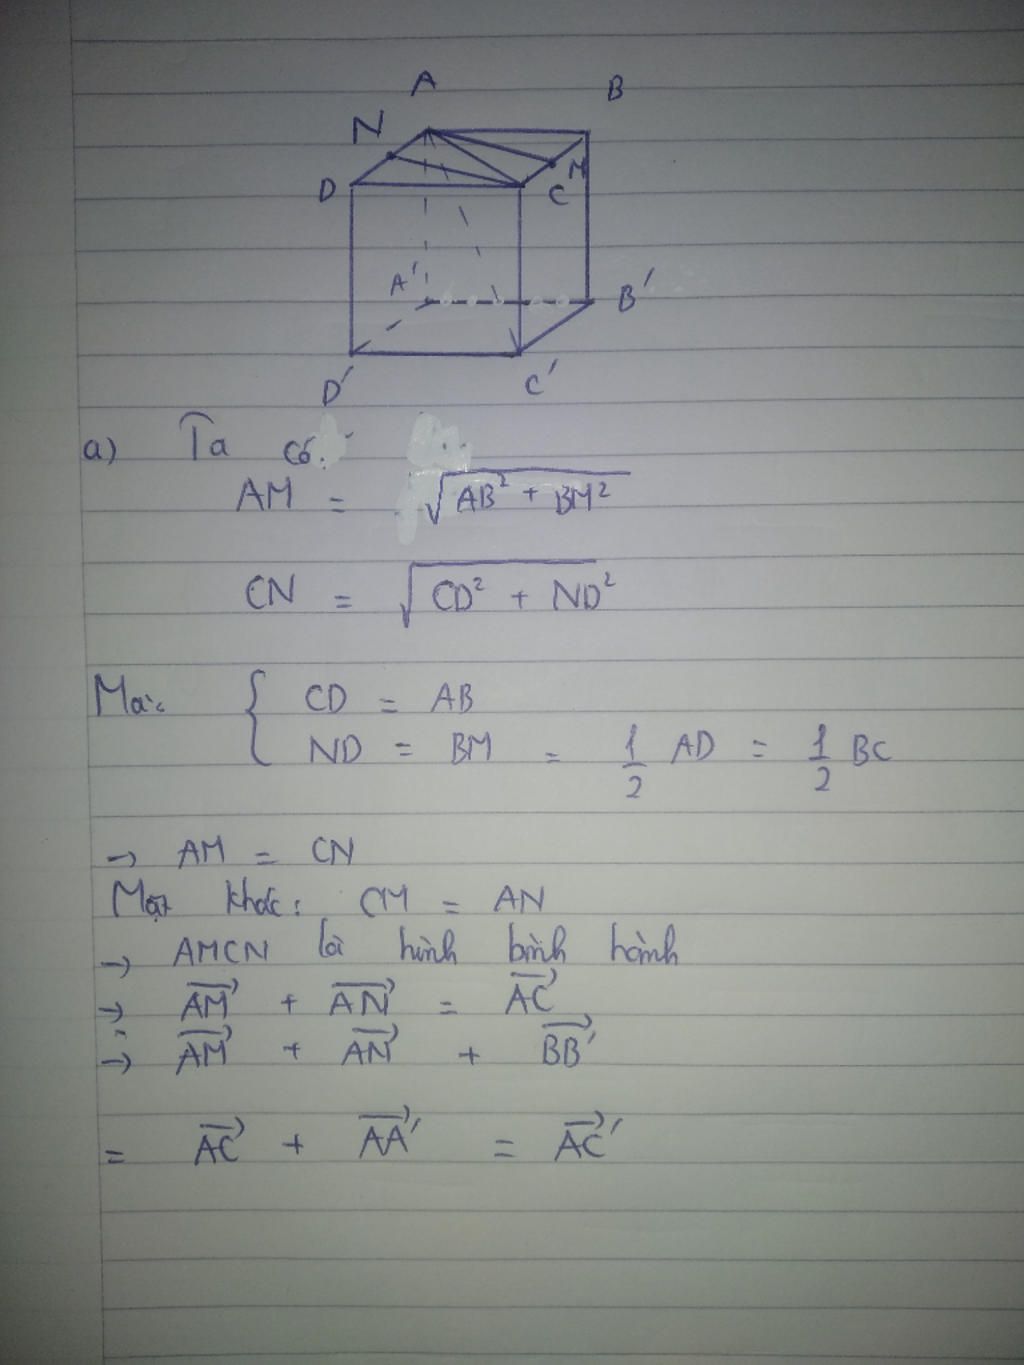 A B
N
D C M
A' B'
D' C'
a) Ta có:
AM = √(AB² + BM²)
CN = √(CD² + ND²)
Mà: { CD = AB
ND = BM = 1/2 AD = 1/2 BC
→ AM = CN
Mặt khác: CM = AN
→ AMCN là hình bình hành
→ AM⃗ + AN⃗ = AC⃗
→ AM⃗ + AN⃗ + BB'⃗
= AC⃗ + AA'⃗ = AC'⃗